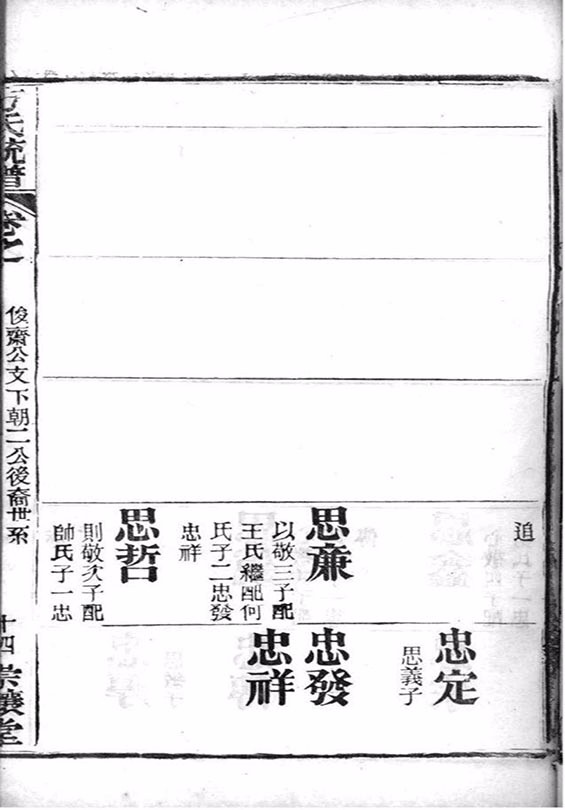 追
思廉
以敬三子配
王氏繼配何
氏子二忠發
忠祥
思哲
則敬次子配
帥氏子一忠
忠定
思義子
忠發
忠祥
氏統譜
卷之
俊齋公支下朝二公後裔世系
十四
堂